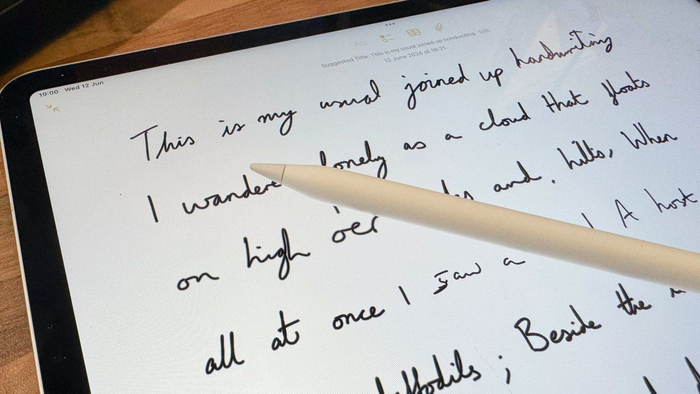 19:00 Wed 12 Jun
Suggested Title: This is my usual joined up handwriting Edit
12 June 2024 at 18:21
This is my usual joined up handwriting
I wandere lonely as a cloud that floats
on high o'er and, hills, When
all at once I saw a A host
Beside the